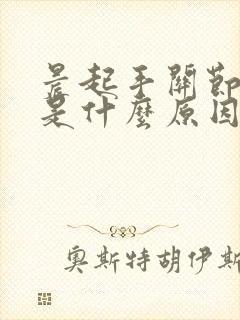 晨起手關節
是什麼原因
奧斯特胡伊斯